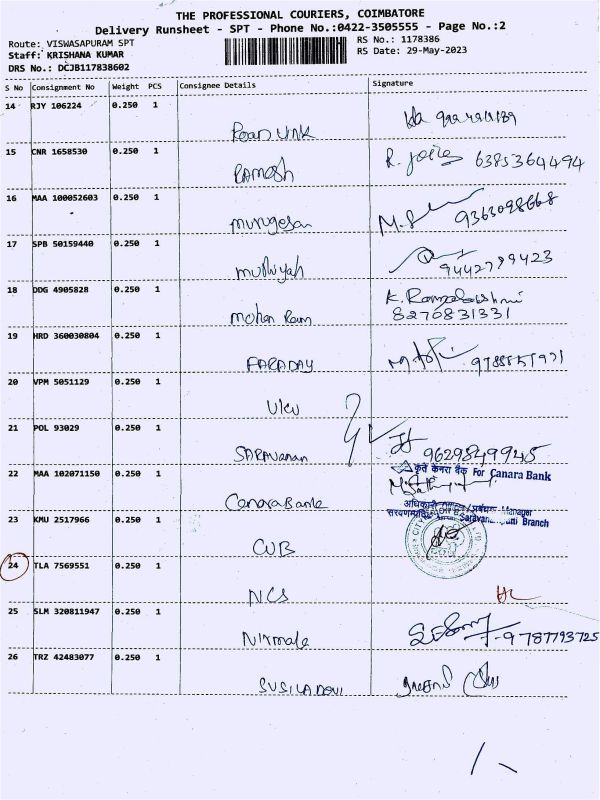 THE PROFESSIONAL COURIERS, COIMBATORE
Delivery Runsheet - SPT - Phone No.:0422-3505555 - Page No.:2
Route: VISWASAPURAM SPT
RS No.: 1178386
Staff: KRISHANA KUMAR
RS Date: 29-May-2023
DRS No.: DCJB117838602
S No Consignment No Weight PCS Consignee Details Signature
14 RJY 106224 0.250 1
15 CNR 1658530 0.250 1
Ramesh R. 6385364494
16 MAA 100052603 0.250 1
murugesan M.S 9363098668
17 SPB 50159440 0.250 1
muthiyah 9442799423
18 DDG 4905828 0.250 1
Mohan Ram K. Ramalakshmi
8270831331
19 HRD 360030804 0.250 1
FARADAY
20 VPM 5051129 0.250 1
21 POL 93029 0.250 1
SARAVanan 9629849945
22 MAA 102071150 0.250 1
कृते केनरा बैंक For Canara Bank
Canara Bank
अधिकारी / प्रबंधक Manager
Branch
23 KMU 2517966 0.250 1
CUB
24 TLA 7569551 0.250 1
NCS
25 SLM 320811947 0.250 1
Nirmala 9787793725
26 TRZ 42483077 0.250 1
SUSILA DEVI